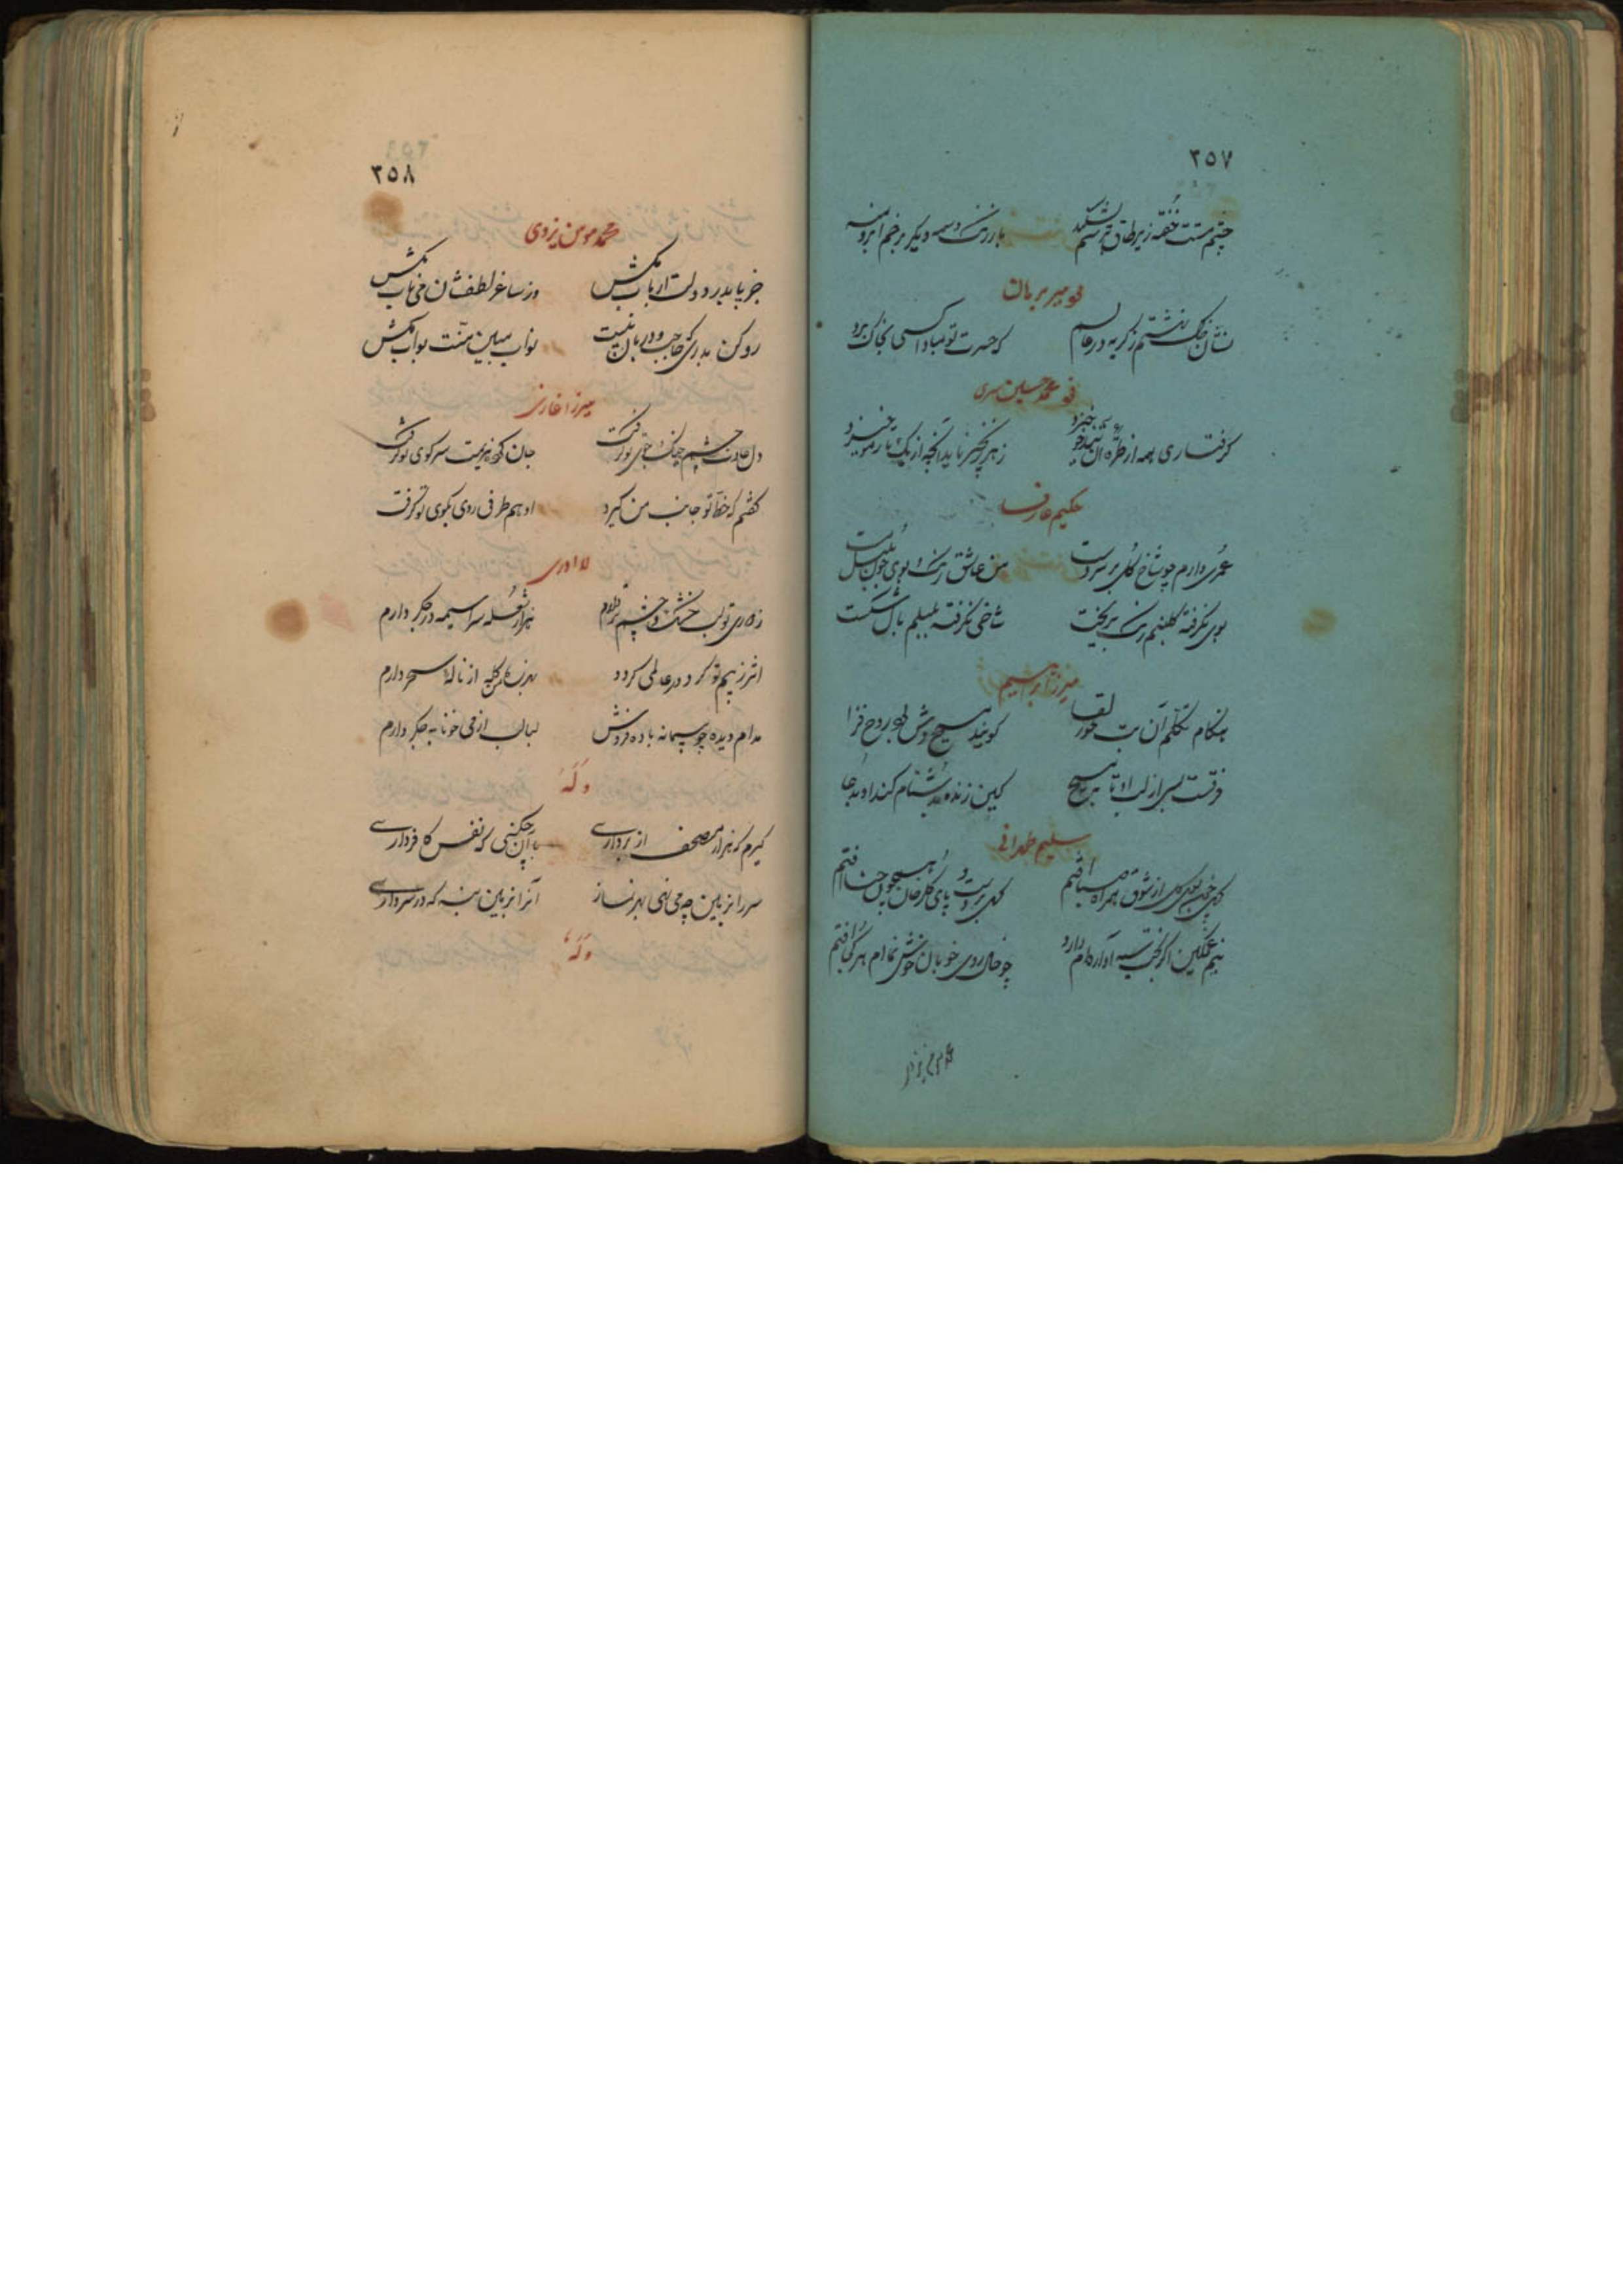 ۲۵۷
چشم مستت خفته زیر طاق
با رنگ وسمه دیگر بر خم ابرو منه
میر برهان
نشان خاک نهشتم ز گریه در عالم
که حسرت تو مبادا کسی بخاک برد
محمد حسین
گرفتاری همه از طره آن
ز هر زنجیر ناید آنچه از یک تار مو خیزد
حکیم عارف
عمری دارم چو شاخ گل بر سر دست
من عاشق رنگ و بوی چون بلبل مست
بوی نگرفته گلبنم رنگ بریخت
شاخی نگرفته بلبلم بال شکست
میرزا ابراهیم
هنگام تکلم آن بت حور لقا
گویند مسیح روح فزا
فرقست بسی از لب او تا بمسیح
کین زنده بدشنام کند او بدعا
سلیم طهرانی
گل از شوق همراه صبا افتم
گهی بر دست و پای گلرخان همچون حنا افتم
نیم غمگین اگر بخت سیه آواره‌ام دارد
چو خال روی خوبان خوش نمایم هر کجا افتم
محمد مومن یزدی
۲۵۸
محمد مومن یزدی
جز یا بدر دولت ارباب مکش
وز ساغر لطفشان می ناب مکش
رو کن بدری که حاجب و دربان نیست
نواب مبین منت بواب مکش
میرزا غازی
دل عادت چشم جنگ جوی تو گرفت
جان هم سر کوی تو گرفت
گفتم که خط تو جانب من گیرد
او هم طرفی روی نکوی تو گرفت
لا ادری
ز دوری تو لب خشک و چشم تر دارم
هزار شعله سراسیمه در جگر دارم
اثر ز بیم تو گرد در عالمی گردد
گله از ناله سحر دارم
مدام دیده چو پیمانه باده فروش
لبالب از می خونابه جگر دارم
وله
گیرم که هزار مصحف از بر داری
با آن چکنی که نفس کافر داری
سر را بزمین چه می نهی بهر نماز
آنرا بزمین بنه که در سر داری
وله